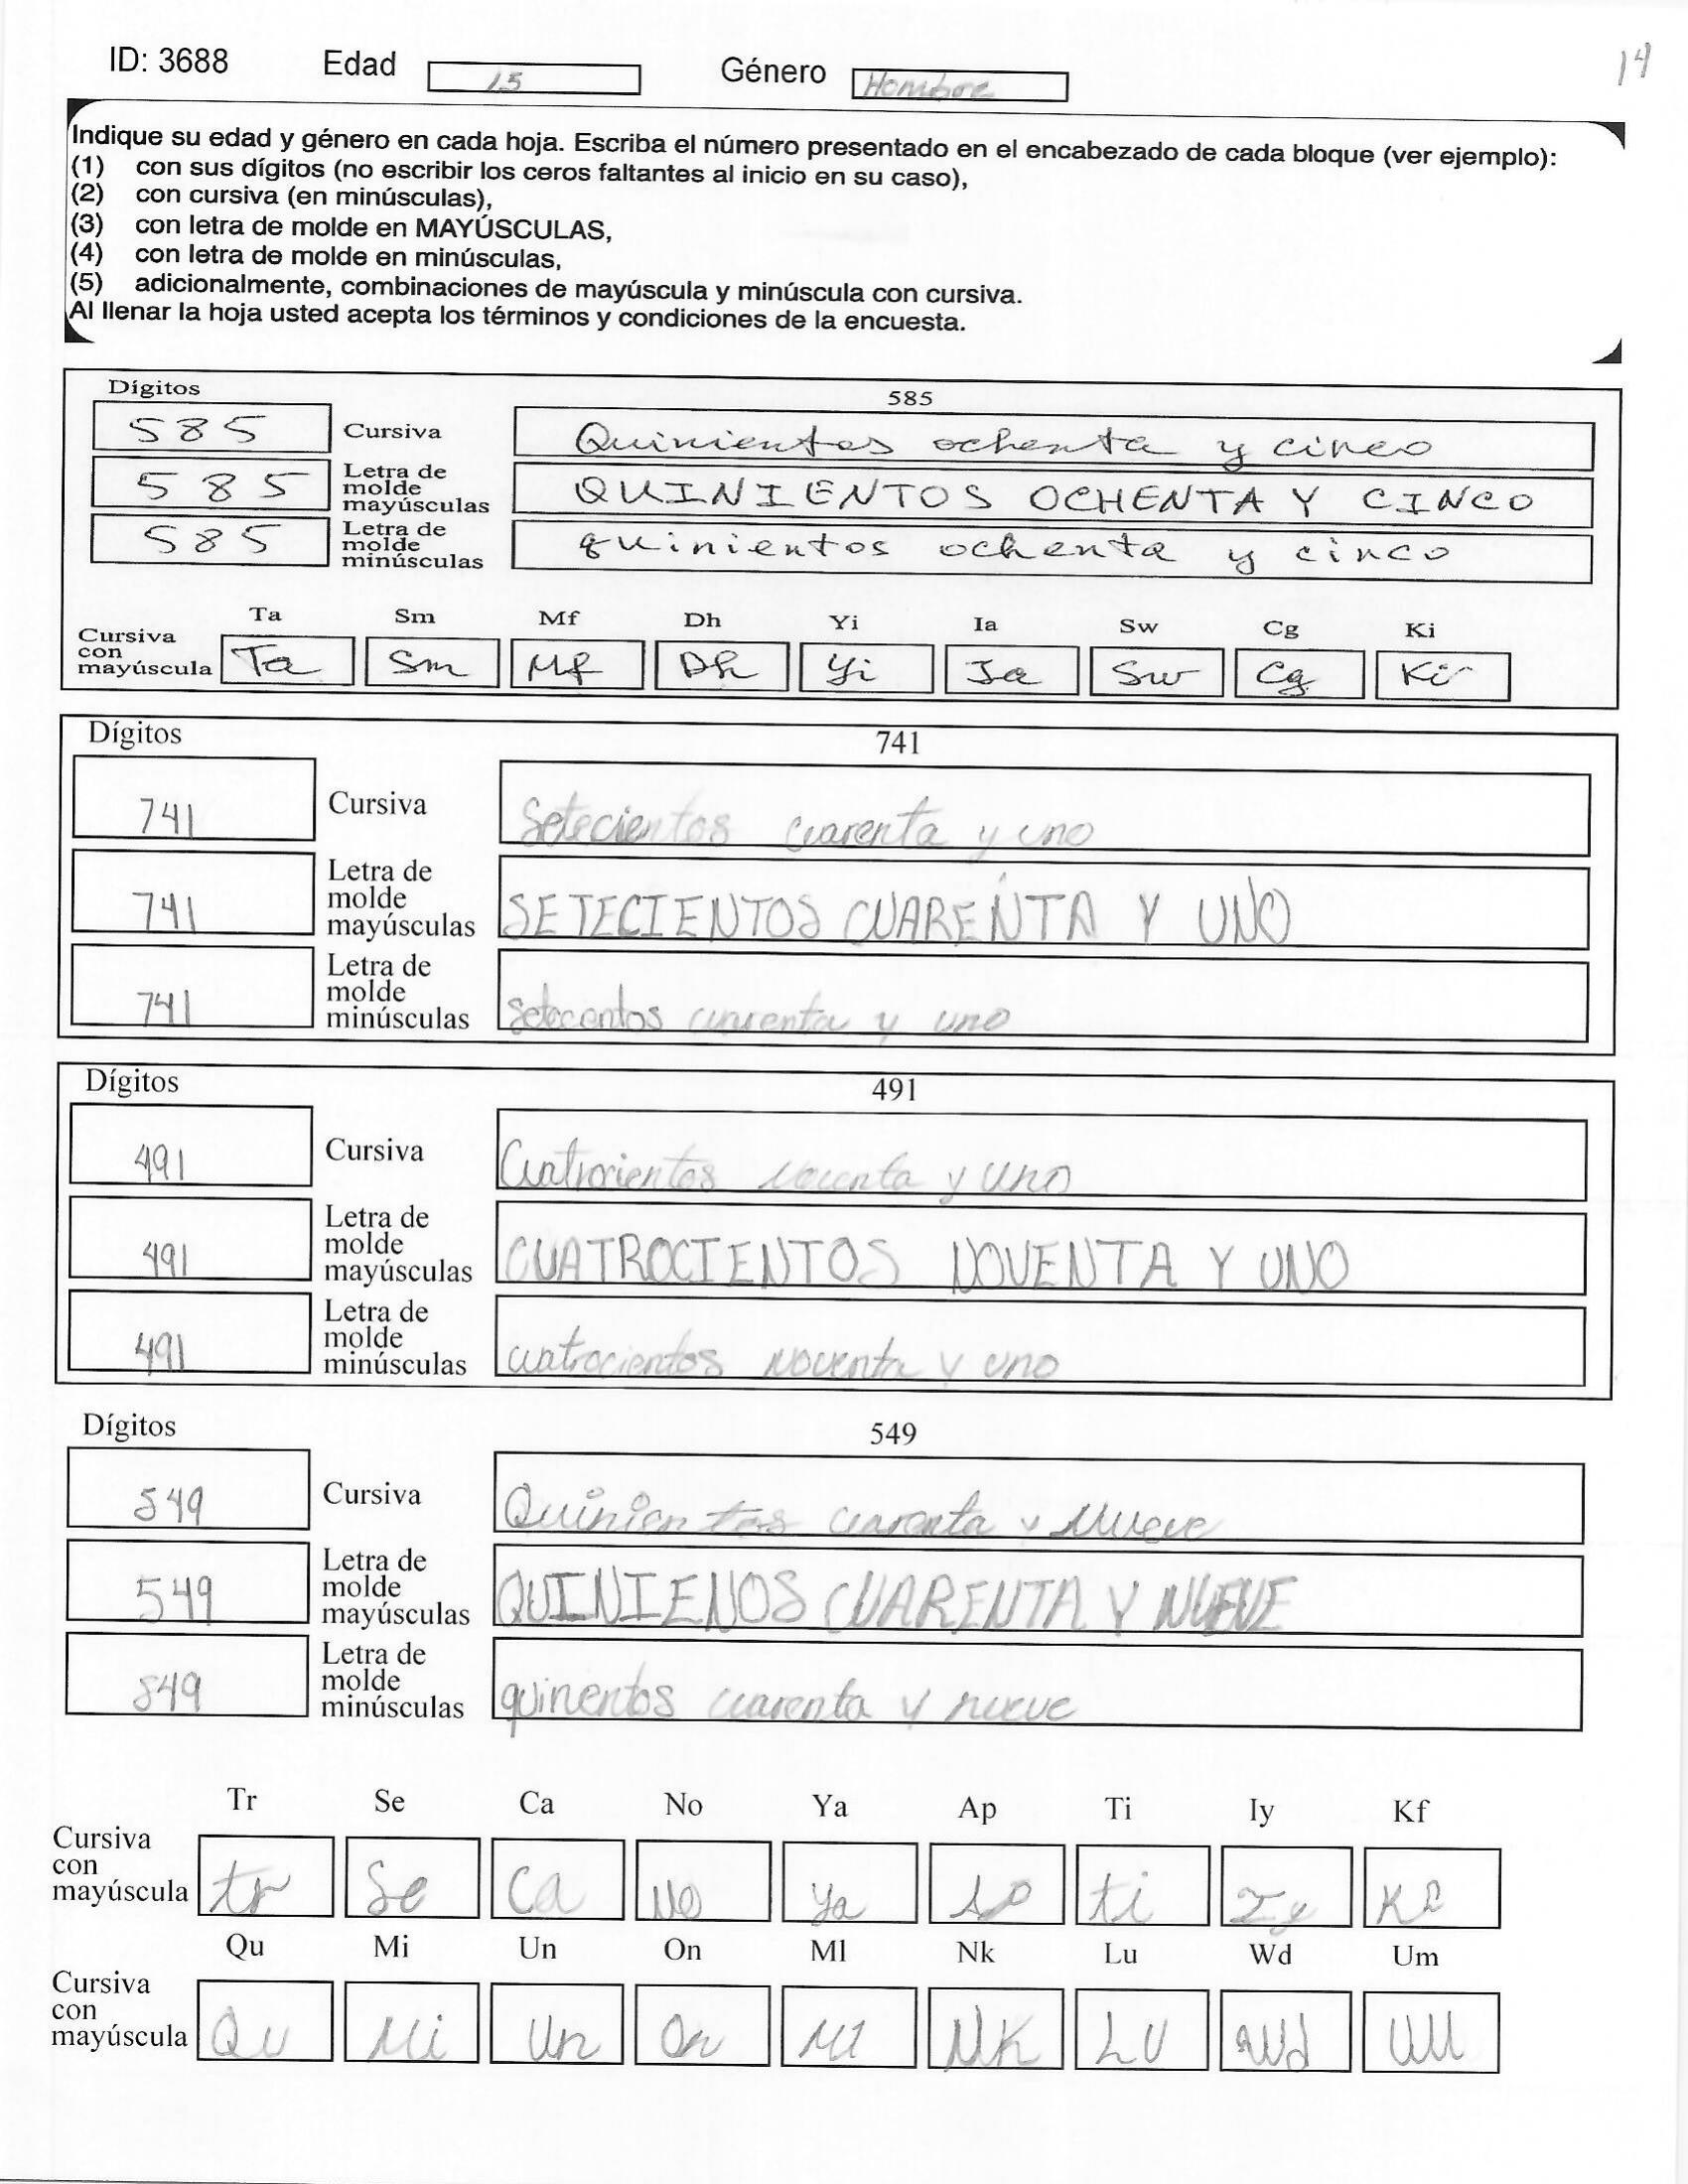 ID: 3688 Edad 15 Género Hombre 14
Indique su edad y género en cada hoja. Escriba el número presentado en el encabezado de cada bloque (ver ejemplo):
(1) con sus dígitos (no escribir los ceros faltantes al inicio en su caso),
(2) con cursiva (en minúsculas),
(3) con letra de molde en MAYÚSCULAS,
(4) con letra de molde en minúsculas,
(5) adicionalmente, combinaciones de mayúscula y minúscula con cursiva.
Al llenar la hoja usted acepta los términos y condiciones de la encuesta.
Dígitos 585
585 Cursiva Quinientos ochenta y cinco
585 Letra de molde mayúsculas QUINIENTOS OCHENTA Y CINCO
585 Letra de molde minúsculas quinientos ochenta y cinco
Ta Sm Mf Dh Yi Ia Sw Cg Ki
Cursiva con mayúscula Ta Sm Mf Dh Yi Ia Sw Cg Ki
Dígitos 741
741 Cursiva Setecientos cuarenta y uno
741 Letra de molde mayúsculas SETECIENTOS CUARENTA Y UNO
741 Letra de molde minúsculas setecentos cuarenta y uno
Dígitos 491
491 Cursiva Cuatrocientos noventa y uno
491 Letra de molde mayúsculas CUATROCIENTOS NOVENTA Y UNO
491 Letra de molde minúsculas cuatrocientos noventa y uno
Dígitos 549
549 Cursiva Quinientos cuarenta y nueve
549 Letra de molde mayúsculas QUINIENOS CUARENTA Y NUEVE
549 Letra de molde minúsculas quinentos cuarenta y nueve
Tr Se Ca No Ya Ap Ti Iy Kf
Cursiva con mayúscula tr Se Ca No Ya Ap ti Iy Kf
Qu Mi Un On Ml Nk Lu Wd Um
Cursiva con mayúscula Qu Mi Un On Ml Nk Lu Wd